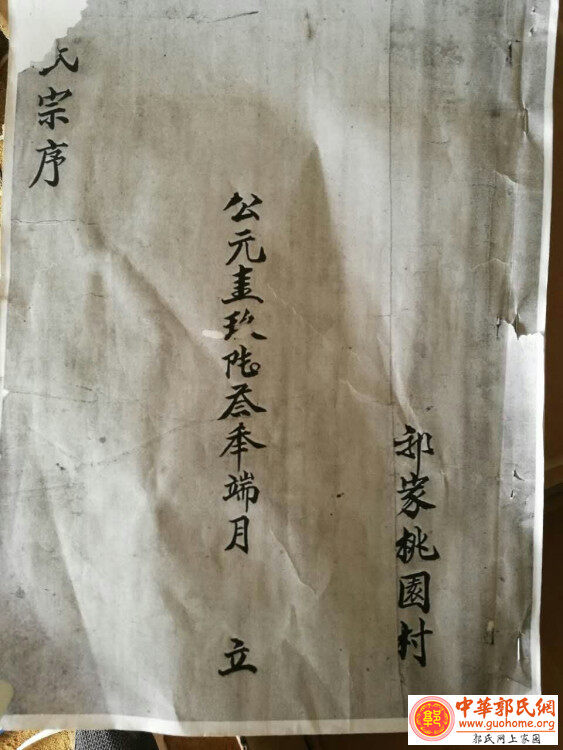 郭家桃園村
公元壹玖陆叁年端月 立
宗序
中華郭氏網
www.guohome.org
郭氏网上家園